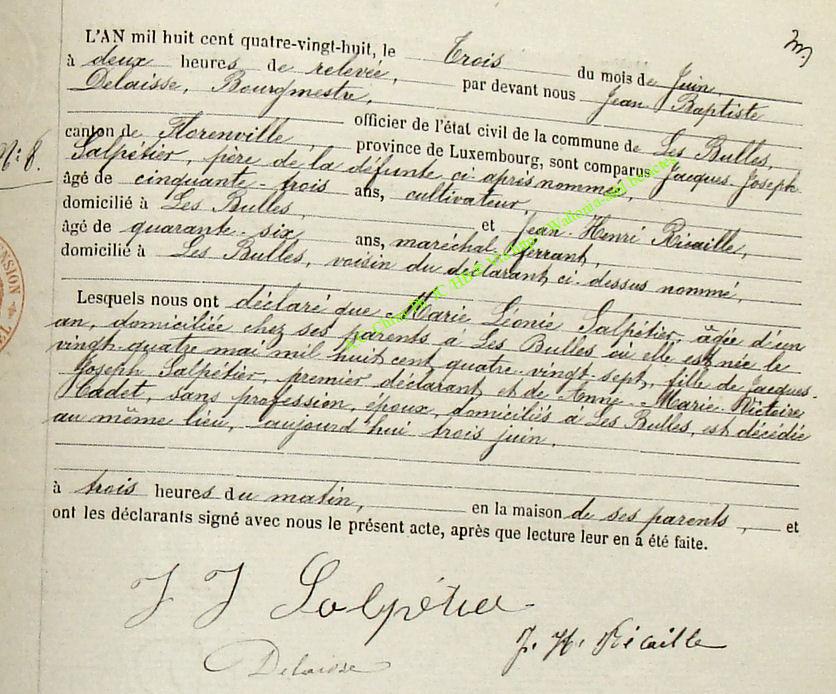 L'AN mil huit cent quatre-vingt-huit, le Trois du mois de Juin,
à deux heures de relevée, par devant nous Jean Baptiste
Delaisse, Bourgmestre,
officier de l'état civil de la commune de Les Bulles,
canton de Florenville, province de Luxembourg, sont comparus Jacques-Joseph
Salpétier, père de la défunte ci après nommée,
âgé de cinquante-trois ans, cultivateur,
domicilié à Les Bulles, et Jean-Henri Ricaille,
âgé de quarante-six ans, maréchal ferrant,
domicilié à Les Bulles, voisin du déclarant ci-dessus nommé,
Lesquels nous ont déclaré que Marie Léonie Salpétier, âgée d'un
an, domiciliée chez ses parents à Les Bulles où elle est née le
vingt-quatre mai mil huit cent quatre-vingt sept, fille de Jacques-
Joseph Salpétier, premier déclarant et de Anne-Marie-Victoire
Cadet, sans profession, époux, domiciliés à Les Bulles, est décédée
au même lieu, aujourd'hui trois juin,
à trois heures du matin, en la maison de ses parents, et
ont les déclarants signé avec nous le présent acte, après que lecture leur en a été faite.
J J Salpétier
J. H. Ricaille
Delaisse